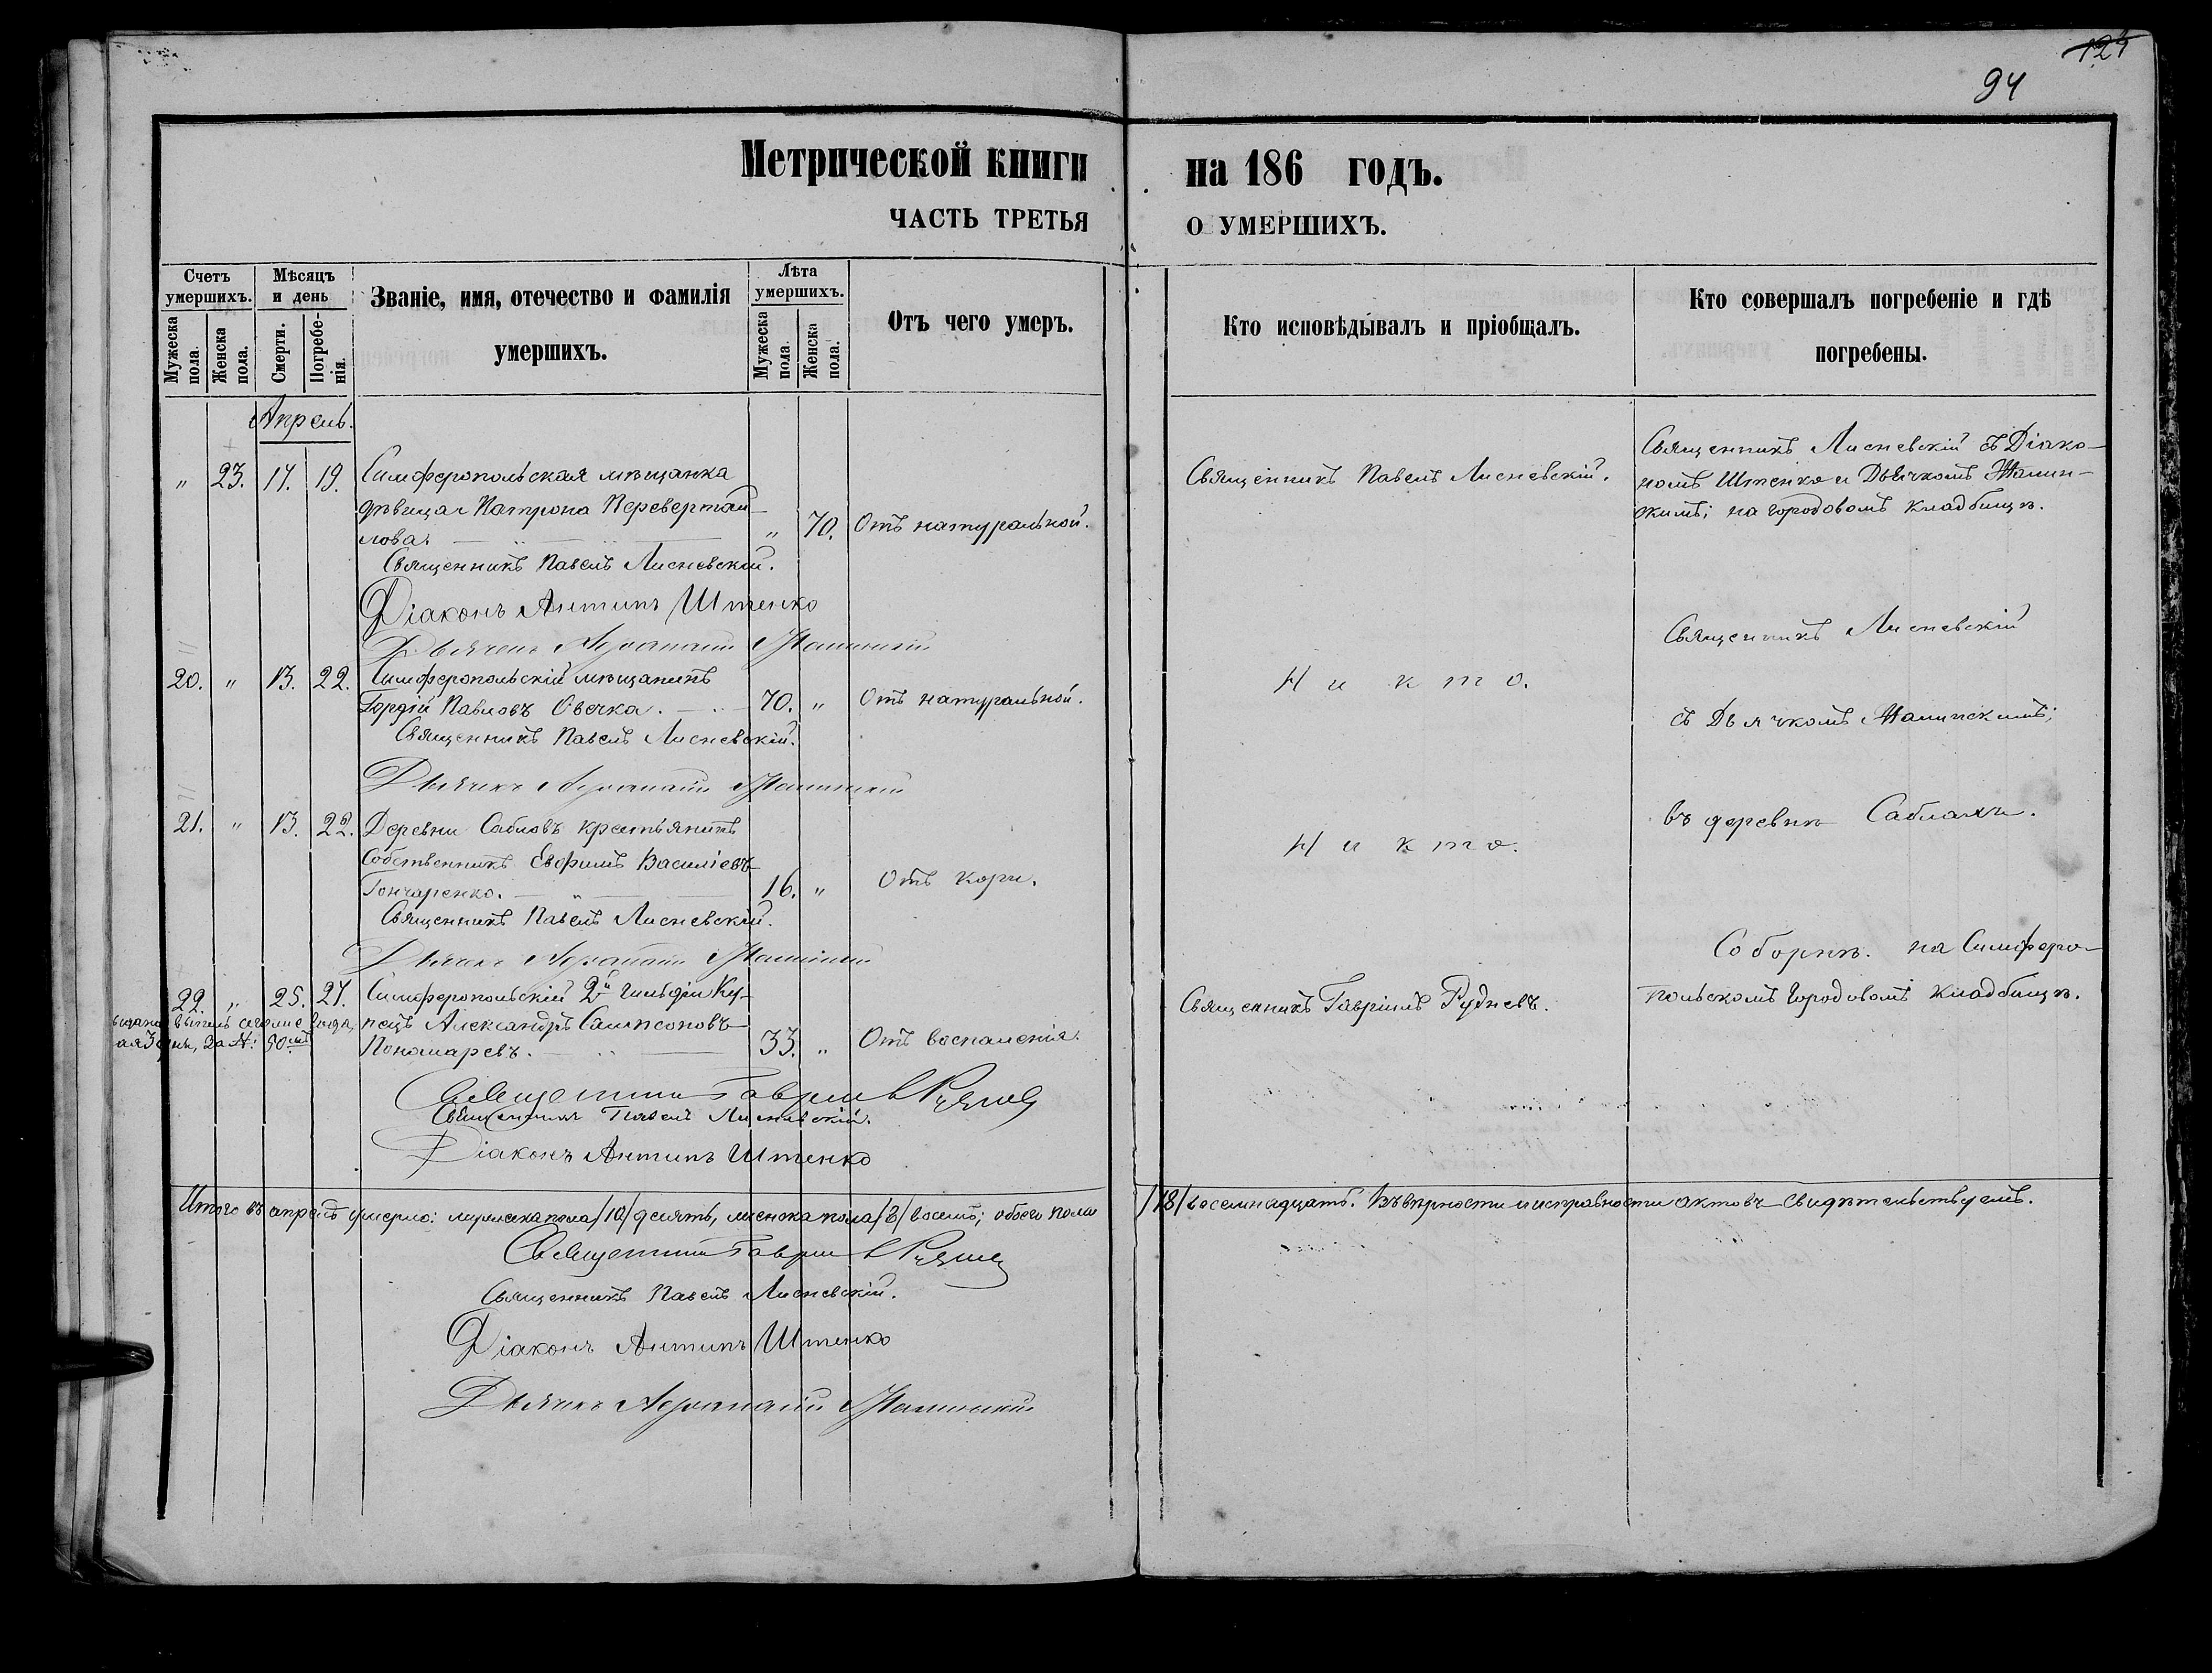 124
94
Метрической книги на 186 годъ.
ЧАСТЬ ТРЕТЬЯ О УМЕРШИХЪ.
Счетъ умершихъ.
Мужеска пола.
Женска пола.
Мѣсяцъ и день
Смерти.
Погребенія.
Званіе, имя, отечество и фамилія умершихъ.
Лѣта умершихъ.
Мужеска пола.
Женска пола.
Отъ чего умеръ.
Кто исповѣдывалъ и пріобщалъ.
Кто совершалъ погребеніе и гдѣ погребены.
Апрель.
" 23. 17. 19. Симферопольская мѣщанка
дѣвица Патрона Перевертай-
лова. " 70. Отъ натуральной.
Священникъ Павелъ Лисневскій.
Священникъ Лисневскій съ Діако-
номъ Штенко и Дьячкомъ
скимъ; на городовомъ кладбищѣ.
Священникъ Павелъ Лисневскій.
Діаконъ Антипъ Штенко
Дьячекъ
20. " 13. 22. Симферопольскій мѣщанинъ
Гордій Павловъ Овечка. 70. " Отъ натуральной.
Никто.
Священникъ Лисневскій
съ Дьячкомъ
Священникъ Павелъ Лисневскій.
Дьячекъ
21. " 13. 22. Деревни Сабловъ крестьянинъ
Собственникъ Евфимъ Василіевъ
Гончаренко. 16. " Отъ кори.
Никто.
въ деревнѣ Саблахъ.
Священникъ Павелъ Лисневскій.
Дьячекъ
22. " 25. 27. Симферопольскій 2й гильдіи Ку-
пецъ Александръ Сампсоновъ
Пономаревъ. 33. " Отъ воспаленія.
Священникъ Гавріилъ Рудневъ.
Соборнѣ. на Симферо-
польскомъ городовомъ кладбищѣ.
за №: 50мъ
Священникъ Гавріилъ Рудневъ
Священникъ Павелъ Лисневскій.
Діаконъ Антипъ Штенко
Итого въ апрелѣ умерло: мужеска пола /10/ десять, женска пола /8/ восемь; обоего пола /18/ восемнадцать. Въ вѣрности и исправности актовъ свидѣтельствуемъ.
Священникъ Гавріилъ Рудневъ
Священникъ Павелъ Лисневскій.
Діаконъ Антипъ Штенко
Дьячекъ